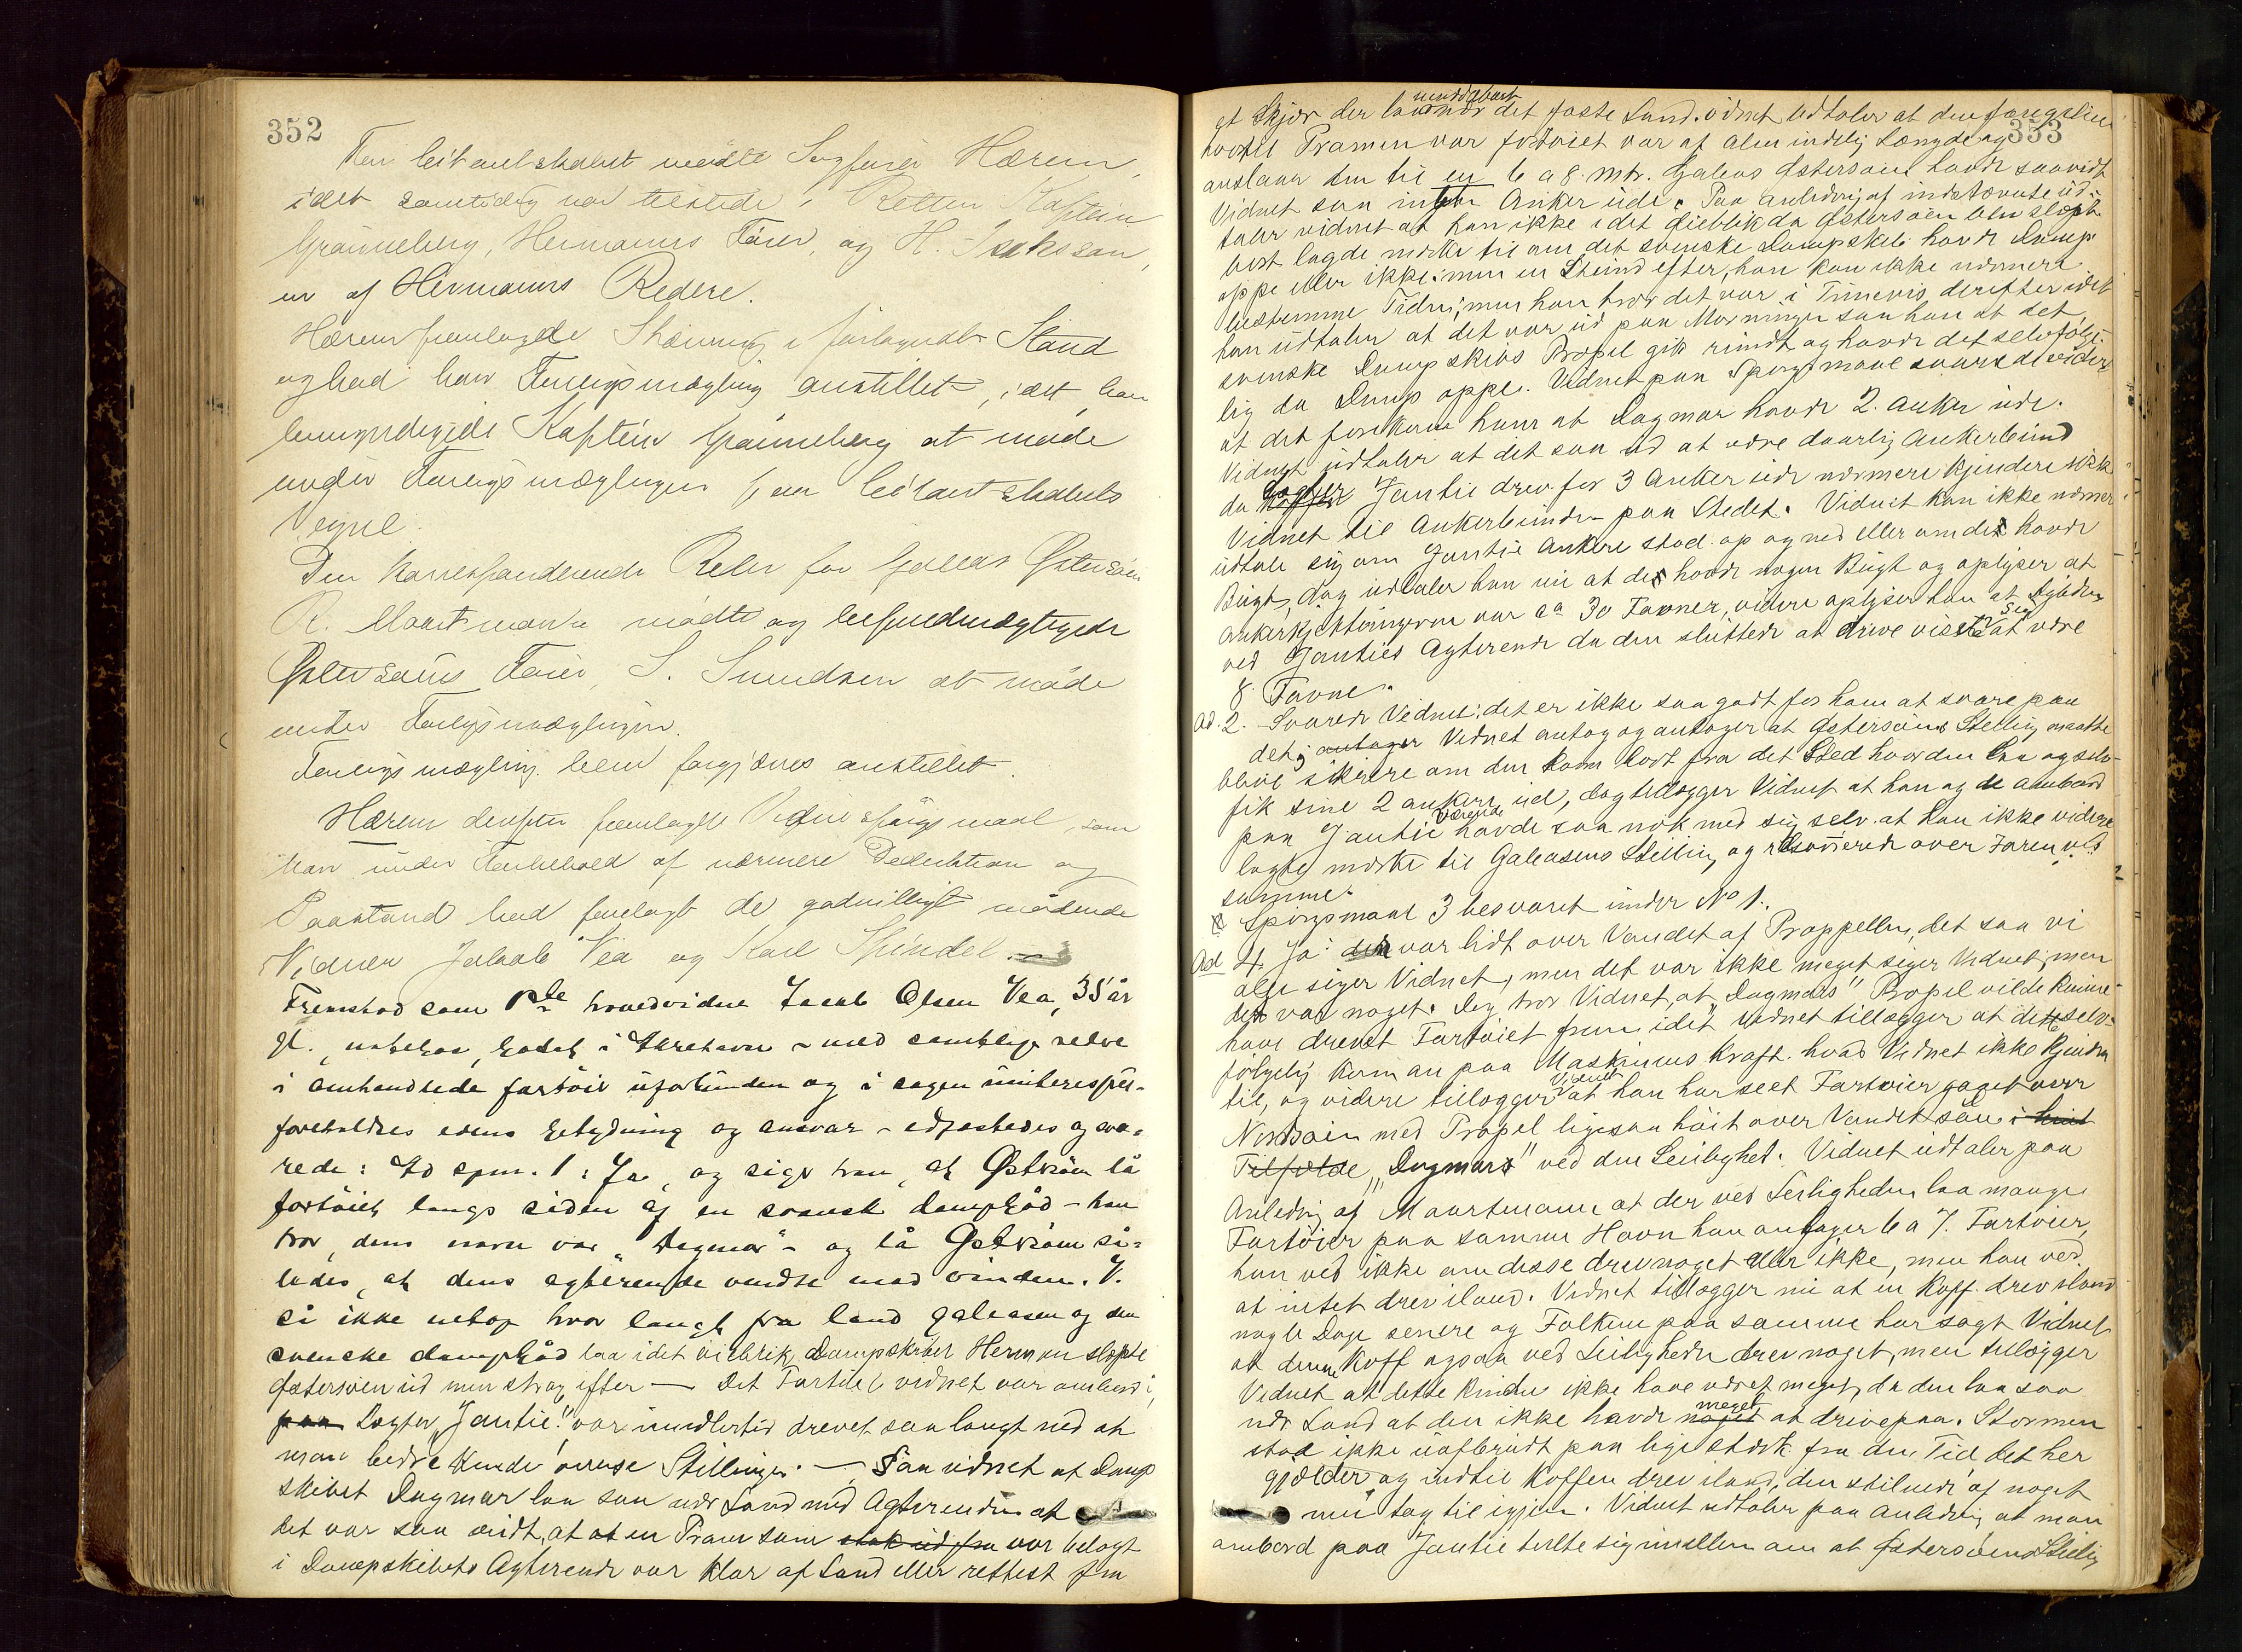 352
For leiet antskabet mødte Sagfører Hærem,
idet samtidig var tilstede i Retten Kaptein
Grönneberg, Hermanns Fører, og H. Isaksson,
en af Hermanns Redere.
Hærem fremlagde Stævning i forkyndt Stand
og bad have Forligsmægling anstillet, idet han
bemyndigede Kaptein Grönneberg at møde
under Forligsmæglingen paa Vegne.
Den korresponderende Reder for Galeas Østersøen
R. Maartmann mødte og befuldmægtigede
Østersøens Fører, S. Svendsen at møde
under Forligsmæglingen.
Forligsmægling blev forgjæves anstillet.
Hærem derefter fremlagde Vidnespørgsmaal, som
han under Forbehold af nærmere Deduktion og
Paastand bad forelagt de godvilligt mødende
Vidner Jakob Vea og Karl Spindel.
Fremstod som 1ste hovedvidne Jacob Olsen Vea, 35 år
gl., ubekjendt, bosat i Skrehavn – med samtlige redere
i omhandlede fartöier uforbunden og i sagen uinteresseret –
foreholdtes edens betydning og ansvar – edfæstedes og sva-
rede: Ad spm. 1: Ja, og siger han, at Østersöen lå
fortöiet langs siden af en svensk dampbåd – han
tror, dens navn var "Dagmar" – og lå Østersöen så-
ledes, at dens agterende vendte mod vinden. V.
så ikke netop hvor langt fra land galeasen og den
svenske dampbåd laa i det øieblik Dampskibet Herman slæpte
Østersøen ud men strax efter — Det Fartøi vidnet var ombord i
paa Lægter "Jantie" var imidlertid drevet saa langt ned at
man bedre kunde overse Stillingen. — Saa vidnet at Damp
skibet Dagmar laa saa nær Land med Agterenden at
det var saa vidt, at at en Pram som stak ud fra var belagt
i Dampskibets Agterende var klar af Land eller rettest fra
353
et Skjær der laa umiddelbart nær det faste Land. Vidnet udtaler at den fangeline
hvortil Pramen var fortøiet var af almindelig Længde og
anslaaer den til en 6 a 8 mtr. Galeas Østersøen havde saavidt
Vidnet saa ingen Anker ude. Paa Anledning af Indstævnte ud-
taler vidnet at han ikke i det øieblik da Østersøen blev slæpt
bort lagde mærke til om det svenske Dampskib havde Damp
oppe eller ikke: men en Stund efter, han kan ikke nærmere
bestemme Tiden, men han tror det var i Timevis derefter idet
han udtaler at det var ud paa Morningen saa han at det
svenske Dampskibs Propel gik rundt og havde det selvfølge-
lig da Damp oppe. Vidnet paa Spørgsmaal svarede videre
at det forekom ham at Dagmar havde 2 Anker ude.
Vidnet udtaler at det saa ud at være daarlig Ankerbund
da Lægter Jantie drev for 3 Anker uden nærmere Kjendere ikke
Vidnet til Ankerbunden paa Stedet. Vidnet kan ikke nærmere
udtale sig om Jantie Ankere stod op og ned eller om de havde
Bugt, dog udtaler han nu at de havde nogen Bugt og oplyser at
Ankerkjættingerne var ca 30 Favner, videre oplyser han at Dybden
ved Janties Agterende da den sluttede at drive viste Sig at være
8 Favne.
Ad. 2. Svarede Vidnet: det er ikke saa godt for ham at svare paa
det; antager Vidnet antog og antager at Østersøens Stelling maatte
blive sikrere om den kom bort fra det Sted hvor den laa og selv-
fik sine 2 ankere ud, dog tillægger Vidnet at han og de ombord
paa Jantie Værende havde saa nok med sig selv at han ikke videre
lagde mærke til Galeasens Stilling og resonerede over Faren ved
samme.
Spörgsmaal 3 besvaret under No 1.
Ad 4. Ja: der var lidt over Vandet af Proppellen, det saa vi
alle siger Vidnet, men det var ikke meget siger Vidnet, men
det var noget. Dog tror Vidnet, at "Dagmars" Propel vilde kunne
have drevet Fartøiet frem idet Vidnet tillægger at dette selv-
følgelig kom an paa Maskinens Kraft hvad Vidnet ikke kjendte
til, og videre tillægger Vidnet at han har seet Fartøier gaaet over
Nordsøen med Propel ligesaa høit over Vandet som i hint
Tilfælde "Dagmars" ved den Leilighet. Vidnet udtaler paa
Anledning af Maartmann at der ved Leiligheden laa mange
Fartöier paa samme Havn han antager 6 a 7 Fartøier,
han ved ikke om disse drev noget eller ikke, men han ved
at intet drev iland. Vidnet tillægger nu at en Koff drev iland
nogle Dage senere og Folkene paa samme har sagt Vidnet
at denne Koff ogsaa ved Leiligheden drev noget, men tillægger
Vidnet at dette kunde ikke have været meget, da den laa saa
nær Land at den ikke havde noget meget at drive paa. Stormen
stod ikke uafbrudt paa lige stærk fra den Tid det her
gjælder og indtil Koffen drev iland, den stilnede af noget
men tog til igjen. Vidnet udtaler paa Anledning at man
ombord paa Jantie talte sig imellem om at Østersøens Stilling